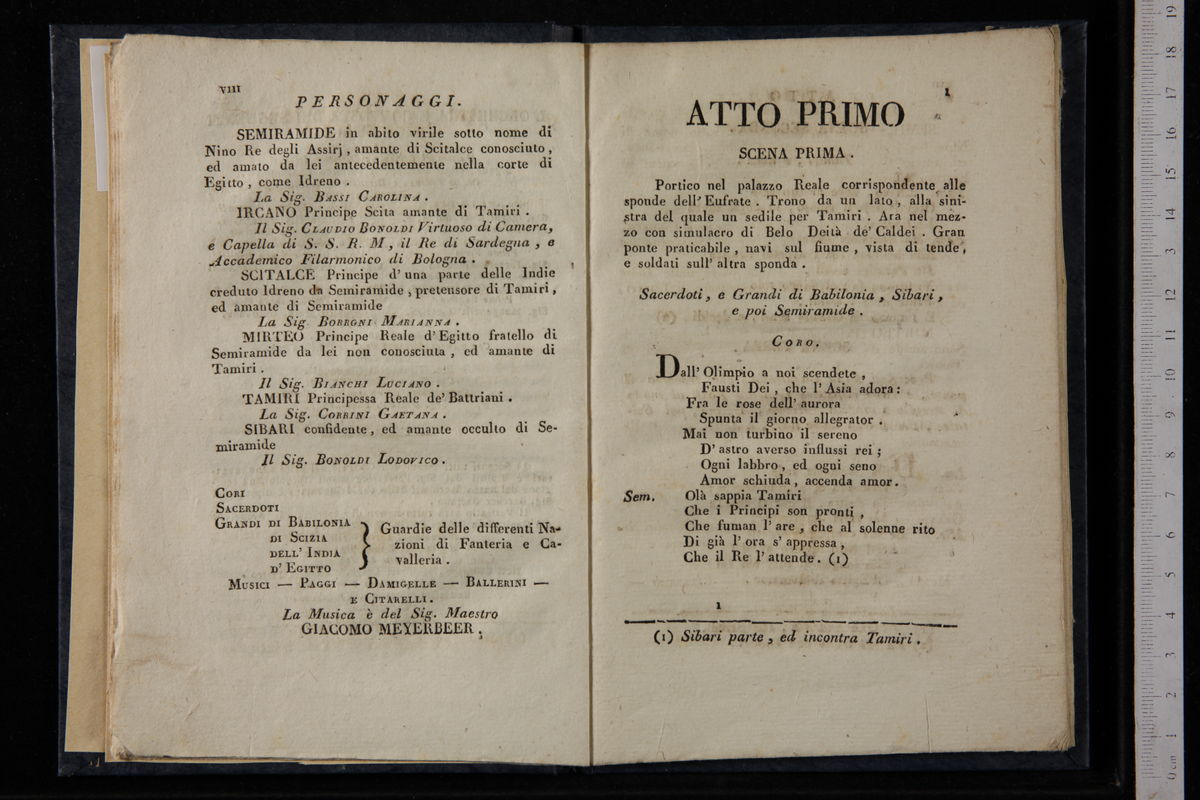 VIII
PERSONAGGI.
SEMIRAMIDE in abito virile sotto nome di
Nino Re degli Assirj, amante di Scitalce conosciuto,
ed amato da lei antecedentemente nella corte di
Egitto, come Idreno.
La Sig. BASSI CAROLINA.
IRCANO Principe Scita amante di Tamiri.
Il Sig. CLAUDIO BONOLDI Virtuoso di Camera,
e Capella di S. S. R. M, il Re di Sardegna, e
Accademico Filarmonico di Bologna.
SCITALCE Principe d'una parte delle Indie
creduto Idreno da Semiramide, pretensore di Tamiri,
ed amante di Semiramide
La Sig. BORRONI MARIANNA.
MIRTEO Principe Reale d'Egitto fratello di
Semiramide da lei non conosciuta, ed amante di
Tamiri.
Il Sig. BIANCHI LUCIANO.
TAMIRI Principessa Reale de' Battriani.
La Sig. CORRINI GAETANA.
SIBARI confidente, ed amante occulto di Se-
miramide
Il Sig. BONOLDI LODOVICO.
CORI
SACERDOTI
GRANDI DI BABILONIA
DI SCIZIA
DELL' INDIA
D' EGITTO
Guardie delle differenti Na-
zioni di Fanteria e Ca-
valleria.
MUSICI — PAGGI — DAMIGELLE — BALLERINI —
E CITARELLI.
La Musica è del Sig. Maestro
GIACOMO MEYERBEER.
1
ATTO PRIMO
SCENA PRIMA.
Portico nel palazzo Reale corrispondente alle
spoude dell' Eufrate. Trono da un lato, alla sini-
stra del quale un sedile per Tamiri. Ara nel mez-
zo con simulacro di Belo Deità de' Caldei. Gran
ponte praticabile, navi sul fiume, vista di tende,
e soldati sull' altra sponda.
Sacerdoti, e Grandi di Babilonia, Sibari,
e poi Semiramide.
CORO.
Dall' Olimpio a noi scendete,
Fausti Dei, che l' Asia adora:
Fra le rose dell' aurora
Spunta il giorno allegrator.
Mai non turbino il sereno
D' astro averso influssi rei;
Ogni labbro, ed ogni seno
Amor schiuda, accenda amor.
Sem. Olà sappia Tamiri
Che i Principi son pronti,
Che fuman l' are, che al solenne rito
Di già l' ora s' appressa,
Che il Re l' attende. (1)
1
(1) Sibari parte, ed incontra Tamiri.
0 cm 1 2 3 4 5 6 7 8 9 10 11 12 13 14 15 16 17 18 19